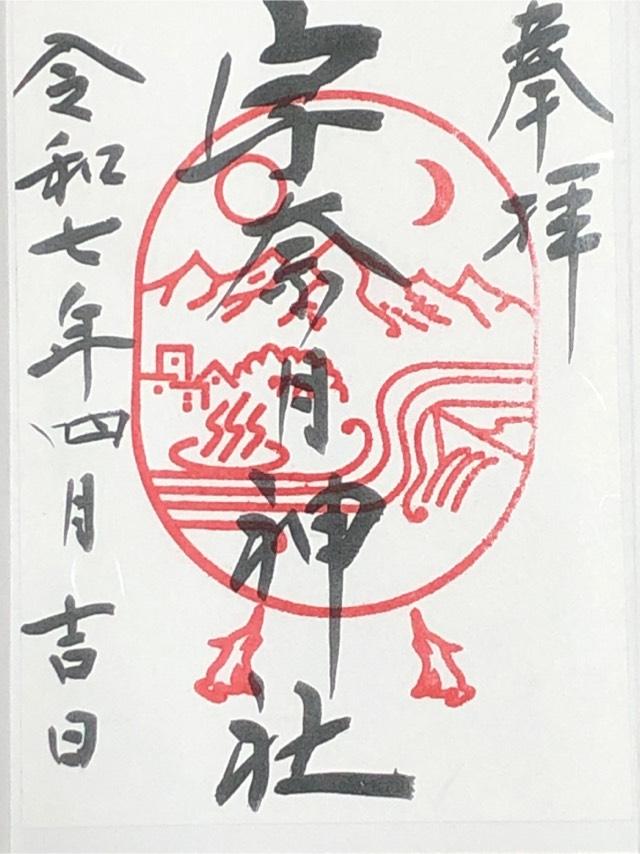 奉拝
宇奈月神社
令和七年四月吉日